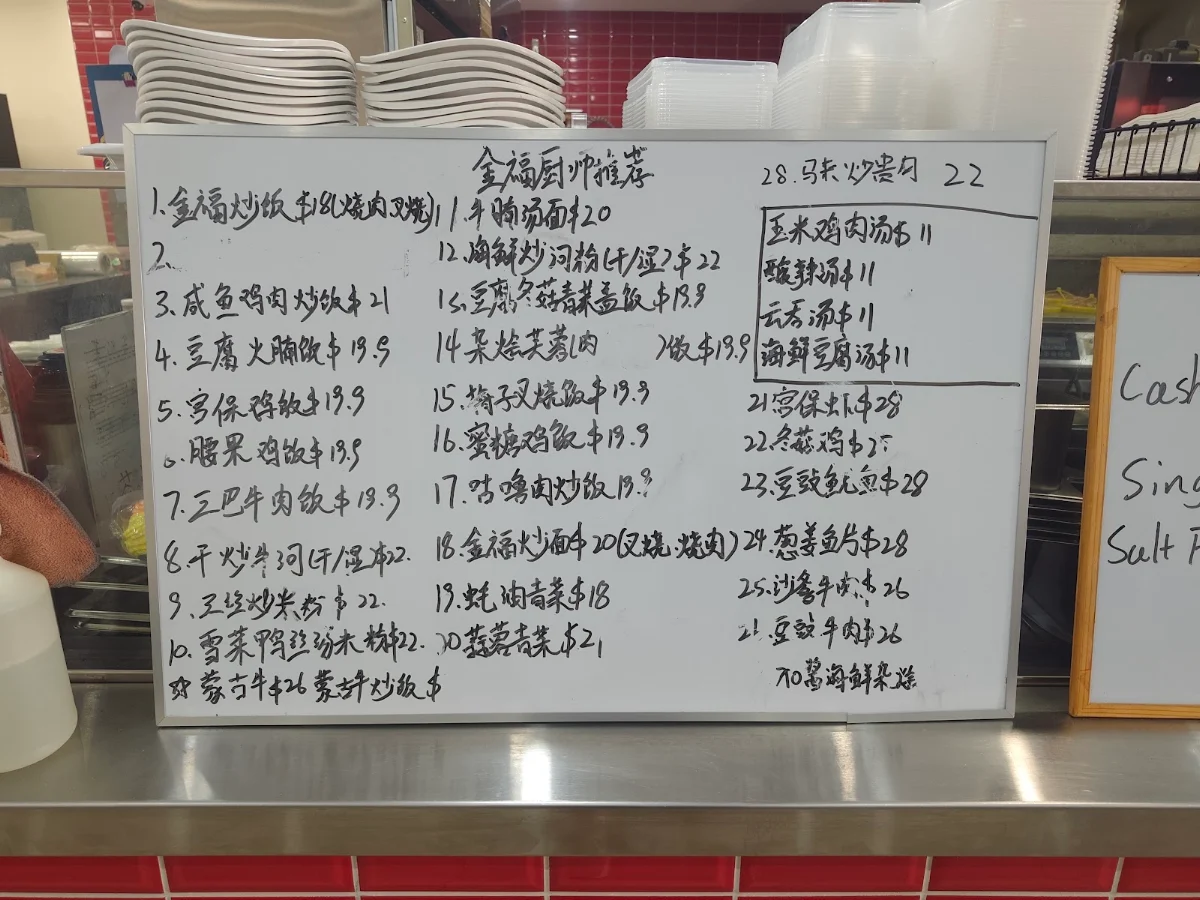 金福厨帅推荐
1.金福炒饭$18(烧肉叉烧)
2.
3.咸鱼鸡肉炒饭$21
4.豆腐火腩饭$19.9
5.宫保鸡饭$19.9
6.腰果鸡饭$19.9
7.三巴牛肉饭$19.9
8.干炒牛河(干/湿)$22.
9.三丝炒米粉$22.
10.雪菜鸭丝焖米粉$22.
蒙古牛$26 蒙古牛炒饭$
11.牛腩汤面$20
12.海鲜炒河粉(干/湿)$22
13.豆腐冬菇青菜盖饭$19.9
14杂烩芙蓉(肉 )饭$19.9
15.梅子叉烧饭$19.9
16.蜜糖鸡饭$19.9
17.咕噜肉炒饭19.9
18.金福炒面$20(叉烧.烧肉)
19.蚝油青菜$18
20蒜蓉青菜$21
28.马来炒贵刁 22
玉米鸡肉汤$11
酸辣汤$11
云吞汤$11
海鲜豆腐汤$11
21宫保虾$28
22.冬菇鸡$2
23.豆豉鱿鱼$28
24.葱姜鱼片$28
25.沙爹牛肉$26
豆豉牛肉$26
XO酱海鲜杂烩
Cash
Sing
Salt